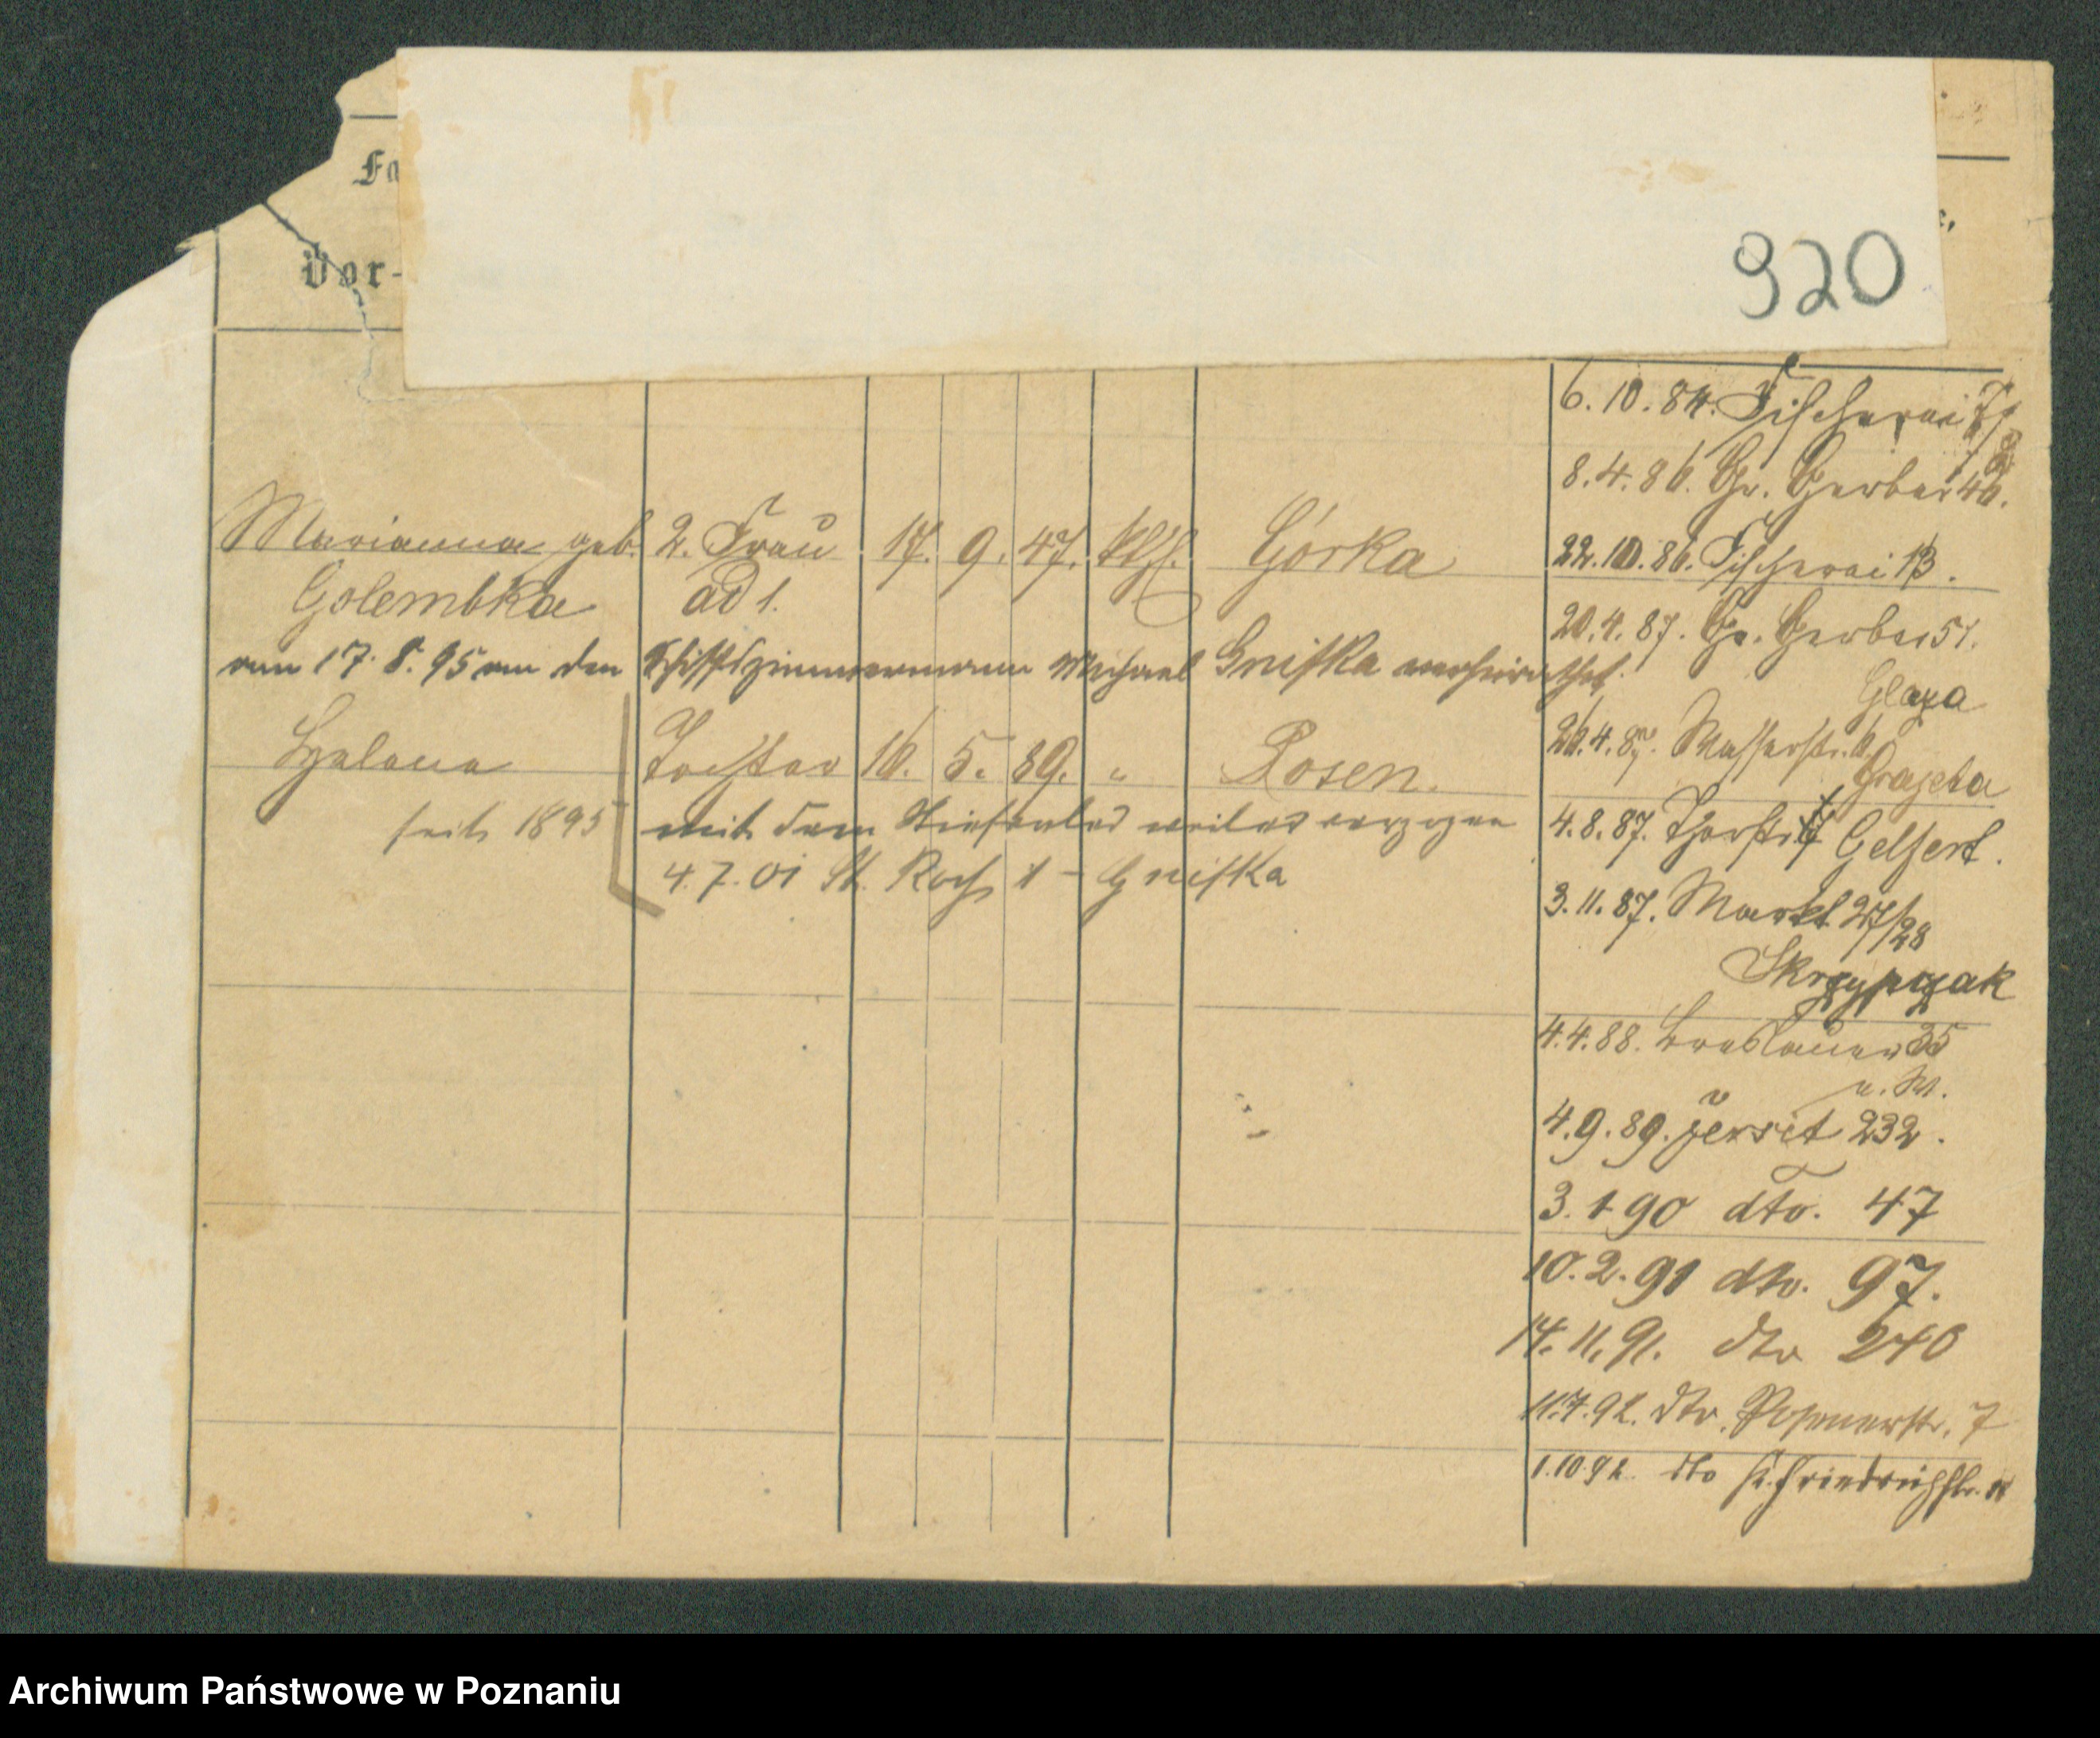 Fa
Vor-
920
Marianna geb. 2. Frau 17. 9. 47. kth. Górka
Golembka ad 1.
am 17. 8. 95 an den Schiffszimmermann Michael Gniffka verheirathet
Helena Tochter 16. 5. 89. " Posen.
seit 1895 mit dem verzogen
4. 7. 01 St. Roch 1 - Gniffka
6. 10. 84. Fischerei
8. 4. 86. Gr. Gerber 46.
22. 10. 86. Fischerei 13.
20. 4. 87. Gr. Gerber 51.
Glaza
26. 4. 87. Wasserstr. 6.
Grajeta
4. 8. 87. Thorstr. Gelfert.
3. 11. 87. Markt 27/28
Skrzypczak
4. 4. 88. Breslauer 35
a. M.
4. 9. 89. Jersit 232.
3. 1 90 dto. 47
10. 2. 91 dto. 97.
14. 11. 91. dto 240
11. 7. 92. dto. Posenerstr. 7
1. 10 92. dto Friedrichstr.
Archiwum Państwowe w Poznaniu